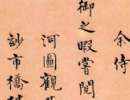 余侍
御之暇嘗閱
河圖觀其
鈔市橋